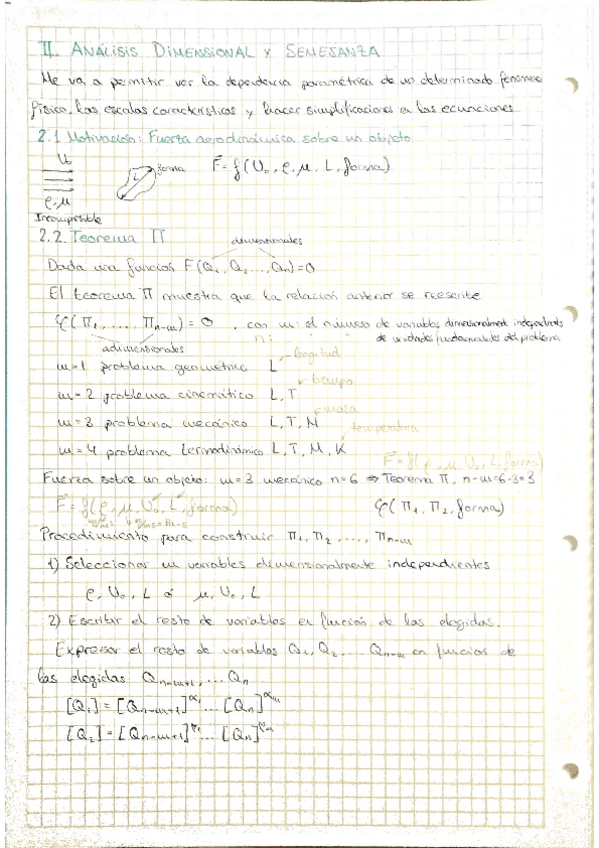 II. ANÁLISIS DIMENSIONAL Y SEMEJANZA
Me va a permitir ver la dependencia paramétrica de un determinado fenómeno
físico, las escalas características y hacer simplificaciones a las ecuaciones
2.1 Motivación: Fuerza aerodinámica sobre un objeto
U₀
L
forma
F⃗ = f(U₀, ρ, μ, L, forma)
ρ, μ
Incompresible
2.2. Teorema Π
dimensionales
Dada una función F(Q₁, Q₂, ..., Qn) = 0
El teorema Π muestra que la relación anterior se reescribe
φ(Π₁, ..., Πn-m) = 0, con m: el número de variables dimensionalmente independientes
n: " " de unidades fundamentales del problema
adimensionales
longitud
m=1 problema geométrico L
tiempo
m=2 problema cinemático L, T
masa
m=3 problema mecánico L, T, M
temperatura
m=4 problema termodinámico L, T, M, K
F⃗ = f(ρ, μ, U₀, L, forma)
Fuerza sobre un objeto: m=3 mecánico n=6 ⇒ Teorema Π, n-m=6-3=3
F⃗ = f(ρ, μ, U₀, L, forma)
φ(Π₁, Π₂, forma)
Procedimiento para construir Π₁, Π₂, ..., Πn-m
1) Seleccionar m variables dimensionalmente independientes
ρ, U₀, L ó μ, U₀, L
2) Escribir el resto de variables en función de las elegidas.
Expresar el resto de variables Q₁, Q₂ ... Qn-m en función de
las elegidas Qn-m+1, ... Qn
[Q₁] = [Qn-m+1]^α₁ ... [Qn]^αm
[Q₂] = [Qn-m+1]^β₁ ... [Qn]^βm